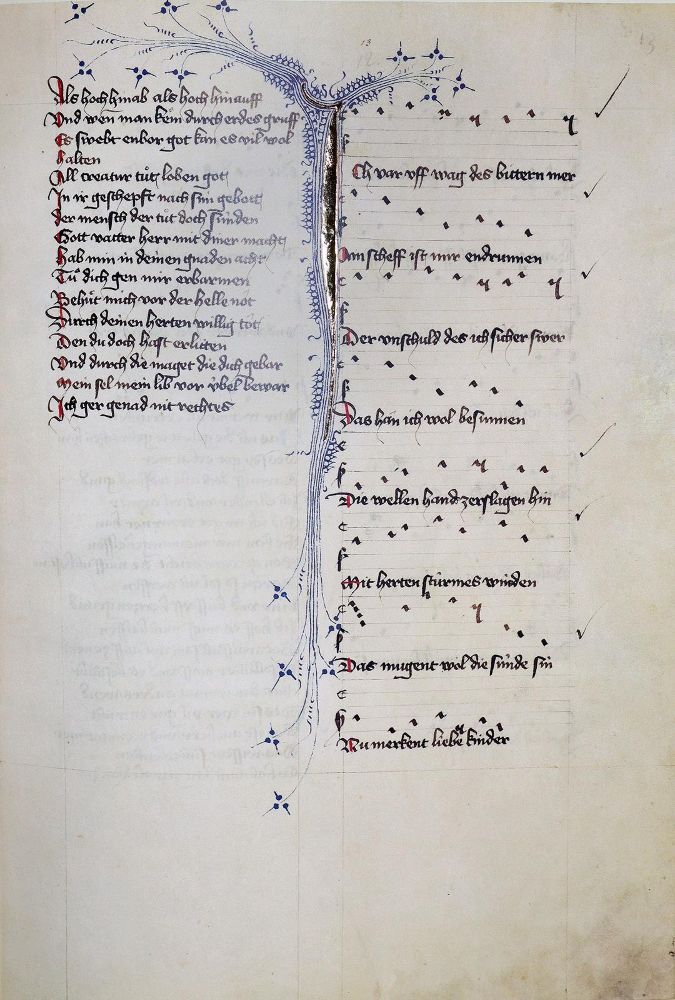 13
13
Als hoch hinab als hoch hinauff
Vnd wen man kem durch erdes gruff
Es swebt enbor got kan es vil wol
halten
All creatur tůt loben got
In ir geschepft nach sim gebott
der mensch der tůt doch sünden
Gott vatter herr mit diner macht
hab min in deinen gnaden acht
Tů dich gen mir erbarmen
Behüt mich vor der helle not
Durch deinen herten willig tot
Den du doch hast erlitten
Vnd durch die maget die dich gebar
Mein sel mein lib vor übel bewar
Ich ger genad nit rechtes
Ich var vff wag des bittern mer
Min scheff ist mir endrunnen
Der vnschuld des ich sicher swer
Das han ich wol besunnen
Die wellen hand zerslagen hin
Mit herten sturmes winden
Das mugent wol die sünde sin
Nu merkent liebe kinder